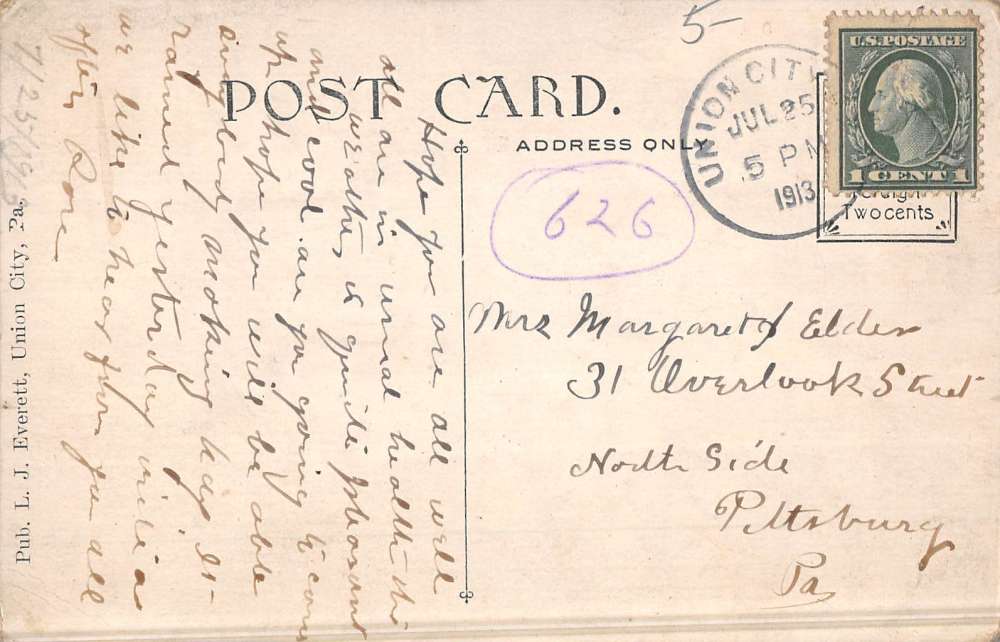 5-
POST CARD.
ADDRESS ONLY
UNION CITY
JUL 25
5 PM
1913
U.S. POSTAGE
1 CENT 1
Two cents
626
Mrs Margaret Elder
31 Overlook Street
North Side
Pittsburg
Pa
Hope you are all well
all are in usual health the
weather is quite pleasant
and cool. are you going to come
up. hope you will be able
everybody making hay. It
rained yesterday
we like to hear from you all
often
Pub. L. J. Everett, Union City, Pa.